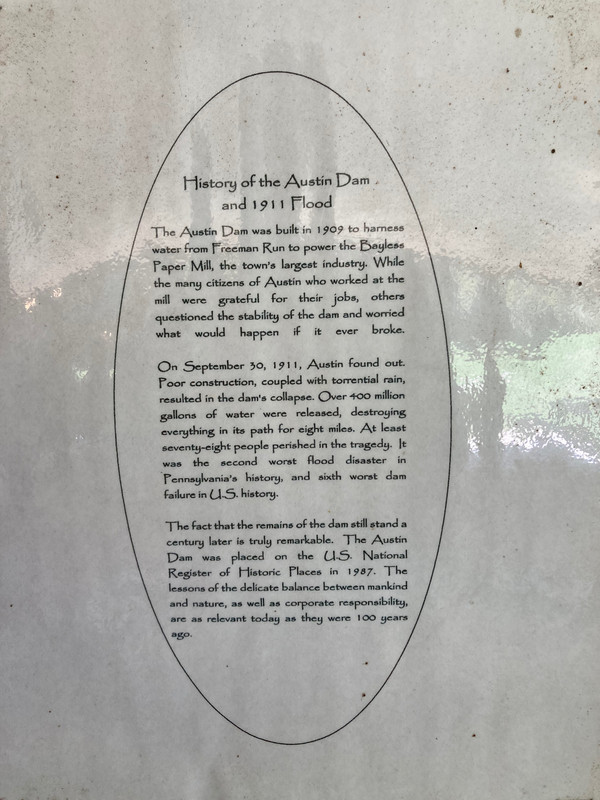 History of the Austin Dam
and 1911 Flood
The Austin Dam was built in 1909 to harness
water from Freeman Run to power the Bayless
Paper Mill, the town's largest industry. While
the many citizens of Austin who worked at the
mill were grateful for their jobs, others
questioned the stability of the dam and worried
what would happen if it ever broke.
On September 30, 1911, Austin found out.
Poor construction, coupled with torrential rain,
resulted in the dam's collapse. Over 400 million
gallons of water were released, destroying
everything in its path for eight miles. At least
seventy-eight people perished in the tragedy. It
was the second worst flood disaster in
Pennsylvania's history, and sixth worst dam
failure in U.S. history.
The fact that the remains of the dam still stand a
century later is truly remarkable. The Austin
Dam was placed on the U.S. National
Register of Historic Places in 1987. The
lessons of the delicate balance between mankind
and nature, as well as corporate responsibility,
are as relevant today as they were 100 years
ago.